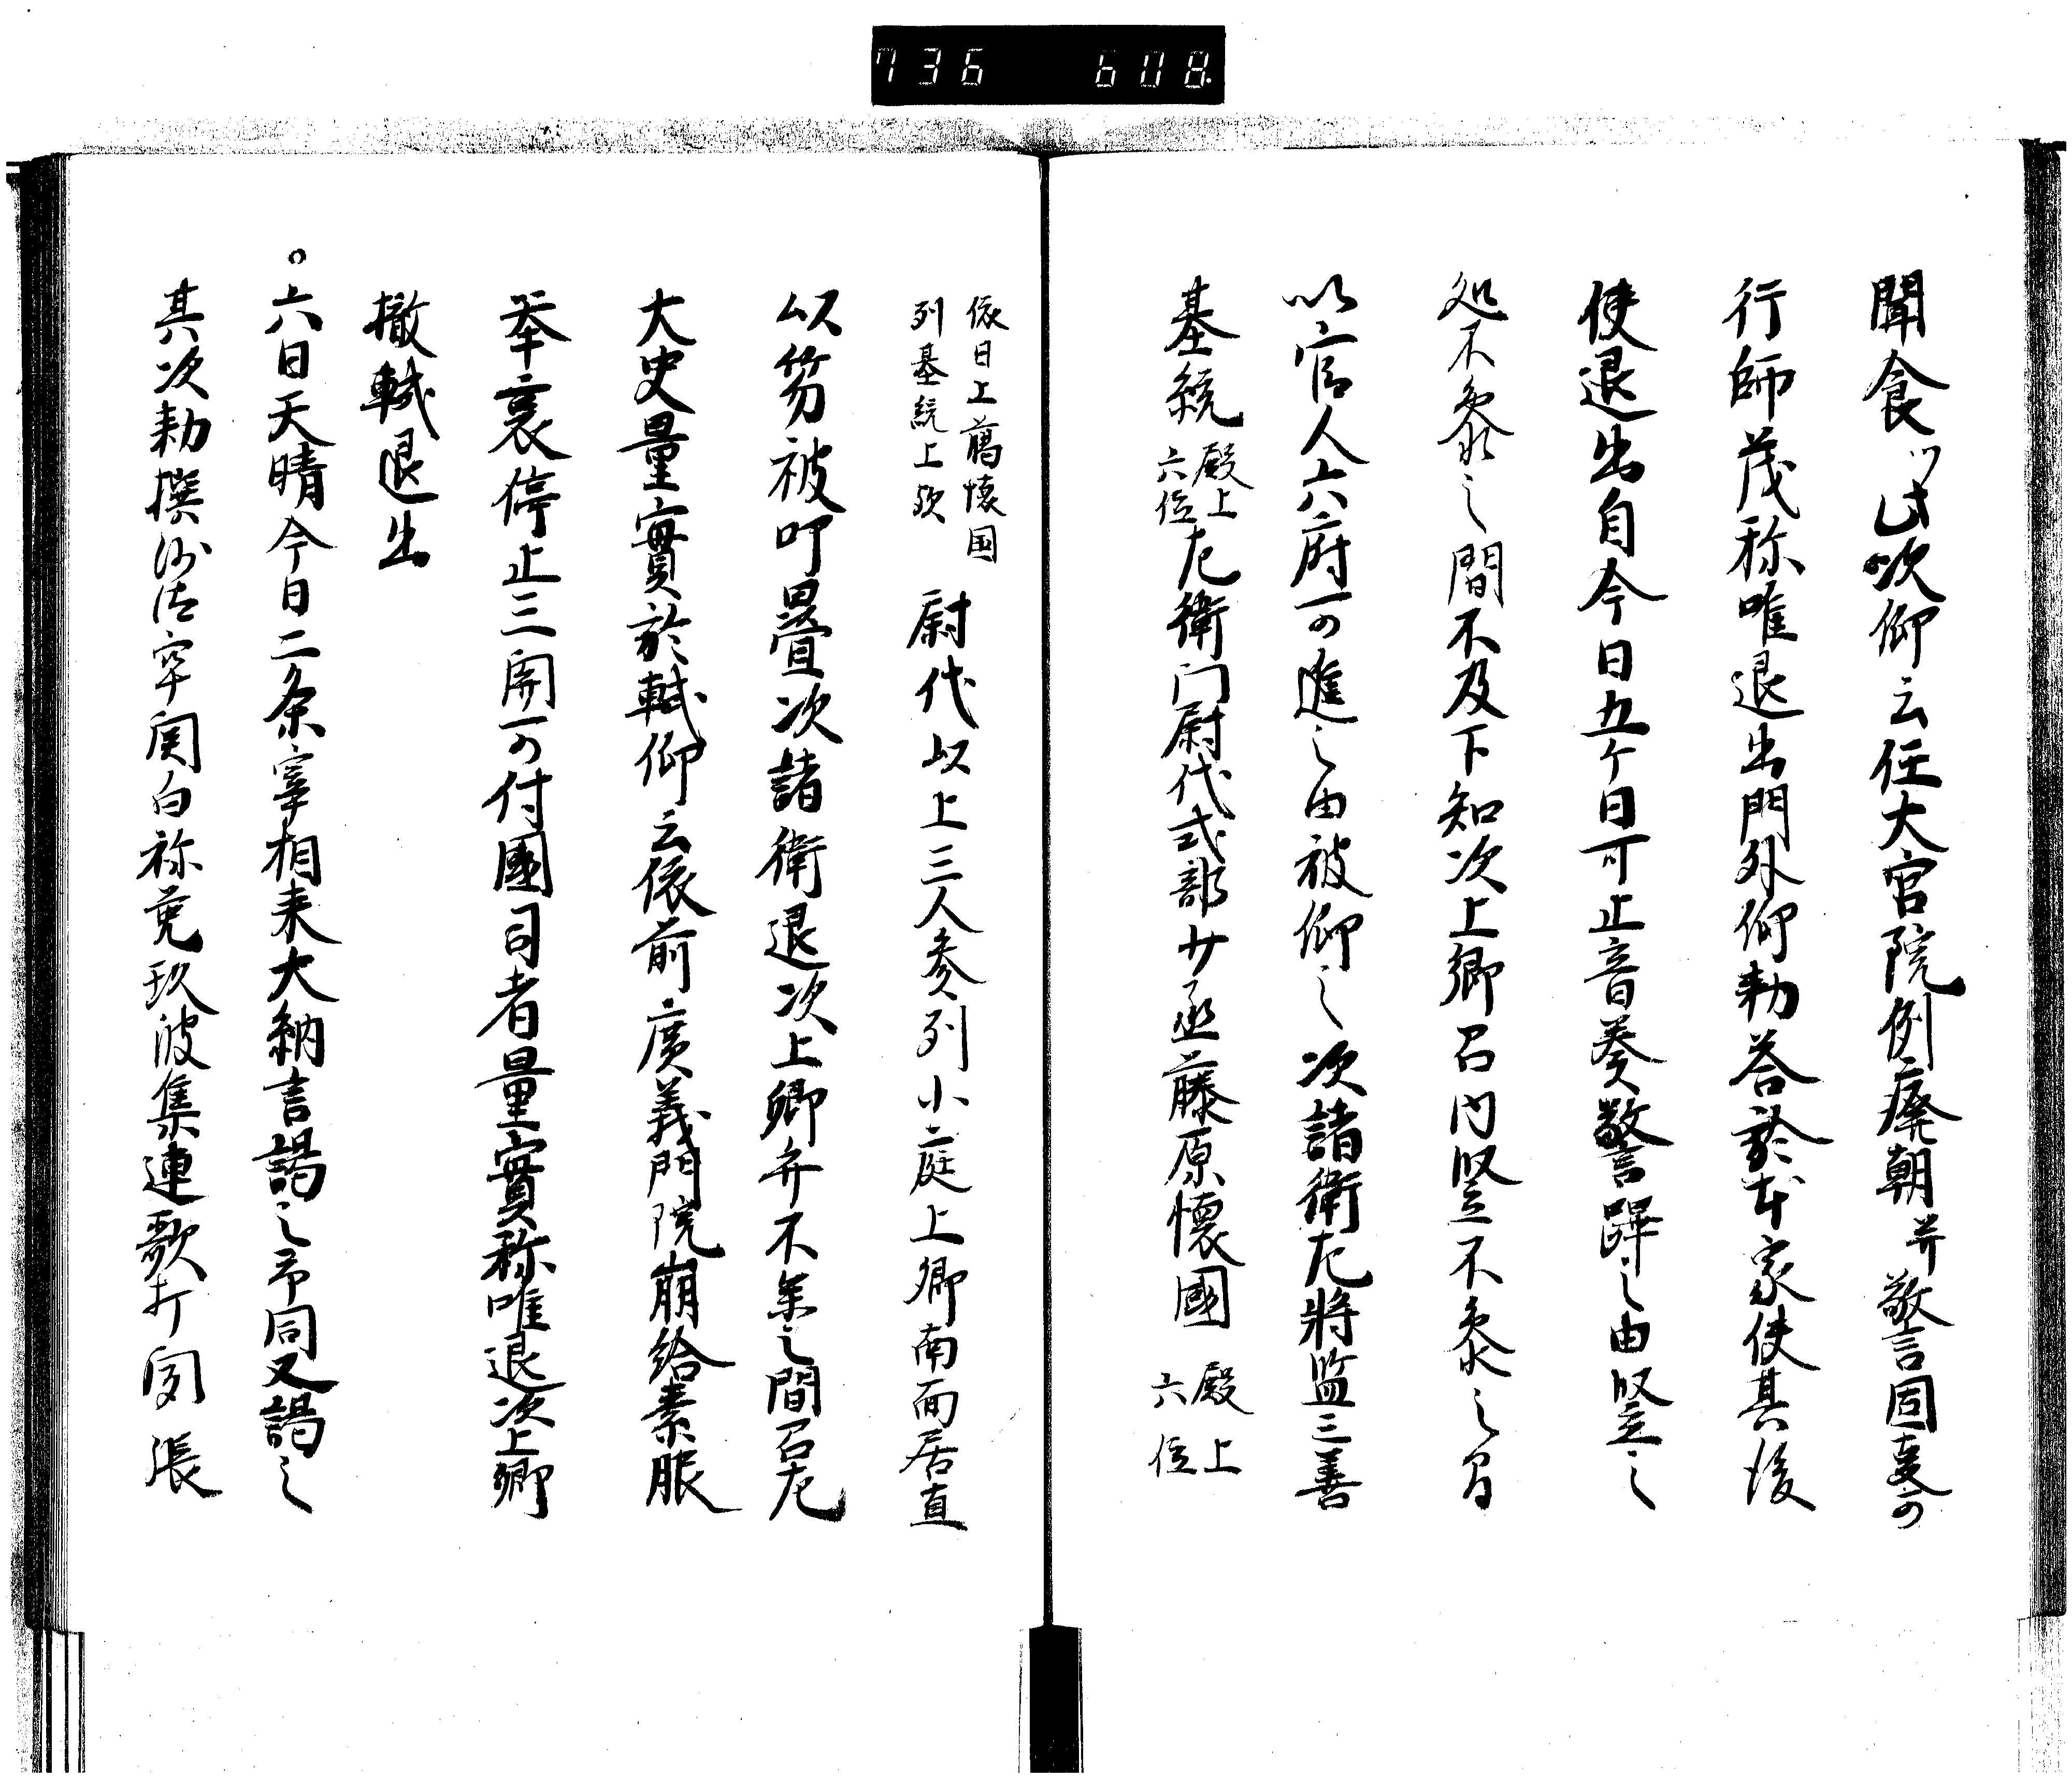 736 608
聞食ツ此次仰云任大宮院例廃朝并警固事可
行師茂称唯退出門外仰勅答於本家使其後
使退出自今日五ケ日可止音奏警蹕之由竪之
処不参之間不及下知次上卿召内竪不参之間
以官人六府可進之由被仰之次諸衛左将監三善
基統殿上六位左衛门尉代式部少丞藤原懐國殿上六位
依日上﨟懐国列基統上歟尉代以上三人参列小庭上卿南面居直
以笏被叩畳次諸衛退次上卿弁不参之間召左
大史量實於軾仰云依前廣義門院崩給素服
挙哀停止三関可付國司者量實称唯退次上卿
撤軾退出
。六日天晴今日二条宰相来大納言謁之予同又謁之
其次勅撰沙汰 関白称菟玖波集連歌打 張